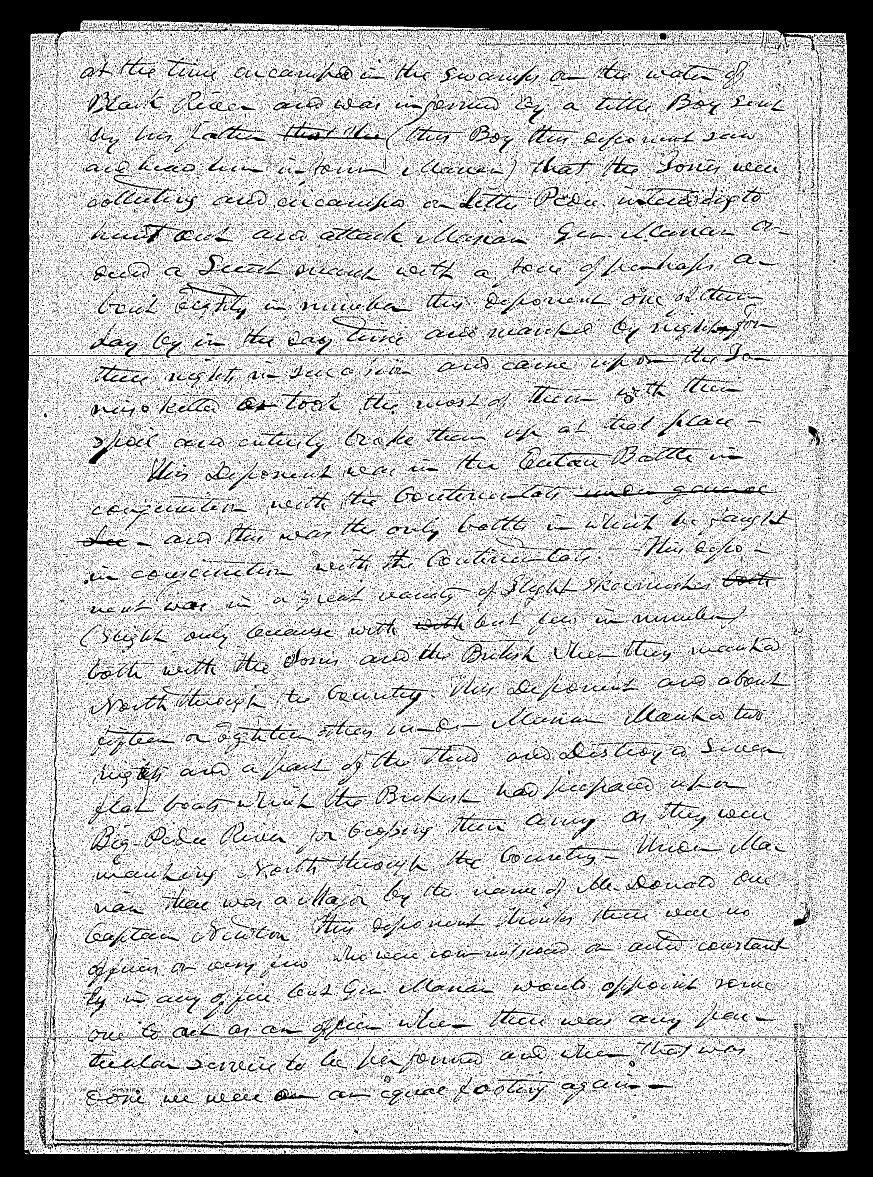 at the time encamped in the swamps on the water of
Black River and was informed by a little Boy sent
by his father that the (this Boy this deponent saw
and heard him inform Marion) that the Tories were
collecting and encamped on Little Pedee intending to
hunt out and attack Marion Gen. Marion or-
dered a Secret march with a force of perhaps a-
bout eighty in number this deponent one of them
day by in the day time and marched by night for
three nights in succession and came up on the To-
ries & killed or took the most of them with their
spoil and entirely broke them up at that place -
This Deponent was in the Eutaw Battle in
conjunction with the Continentals under general
and this was the only battle in which he faught
in conjunction with the Continentals. This depo-
nent was in a great variety of slight skirmishes both
(slight only because with with but few in number)
both with the Tories and the British when they marched
North through the Country. This Deponent and about
fifteen or eighteen others under Marion Marched two
nights and a part of the third and Destroyed Seven
flat boats which the British had prepared up on
Big Pedee River for crossing their army as they were
marching North through the Country - Under Ma-
rion there was a Major by the name of McDonald one
Captain Newton This deponent thinks there were no
officers or very few who were commissioned or acted constant
ly in any office but Gen Marion would appoint some
one to act as an officer when there was any par-
ticular service to be performed and when that was
done we were on an equal footing again -